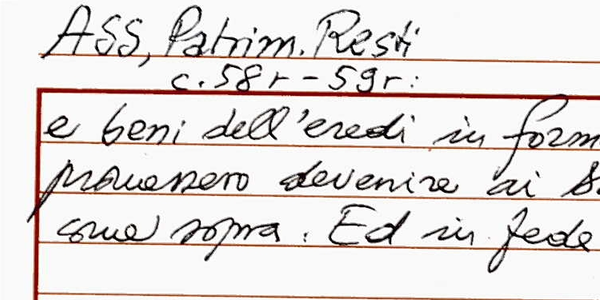 ASS, Patrim. Resti
c. 58r - 59r:
e beni dell'eredi in form
devenire ai
come sopra. Ed in fede